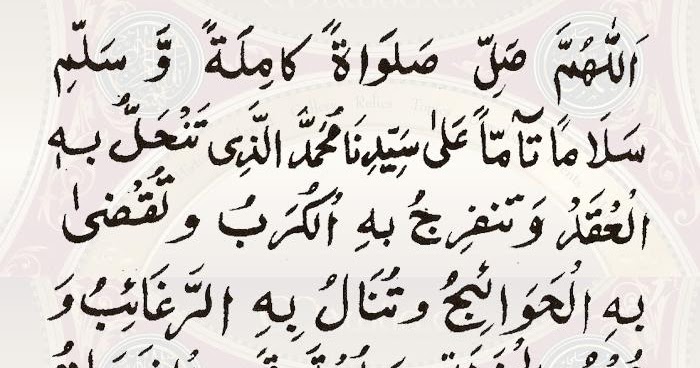 اَللّٰهُمَّ صَلِّ صَلَوَاةً كَامِلَةً وَّ سَلِّمِ
سَلَامًا تَآمّاً عَلىٰ سَيِّدِنَا مُحَمَّدَّ الَّذِى تَنْحَلُّ بِهِ
الْعُقَدُ وَتَنفرِجُ بِهِ الْكُرَبُ و تُقْضىٰ
بِهِ الْحَوَائِجُ و تُنَالُ بِهِ الرَّغَائِبُ وَ